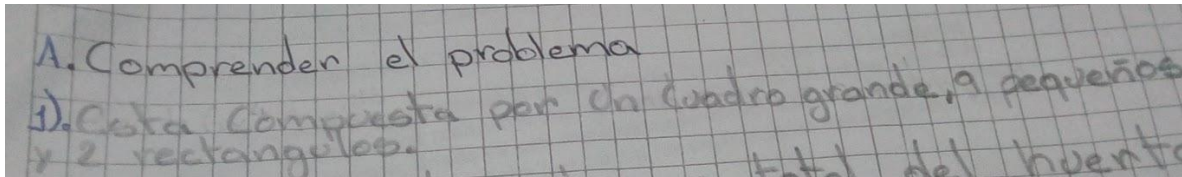 A. Comprender el problema
1). Esta compuesta por un cuadro grande, 9 pequeños
y 2 rectangulos.
total del huerto